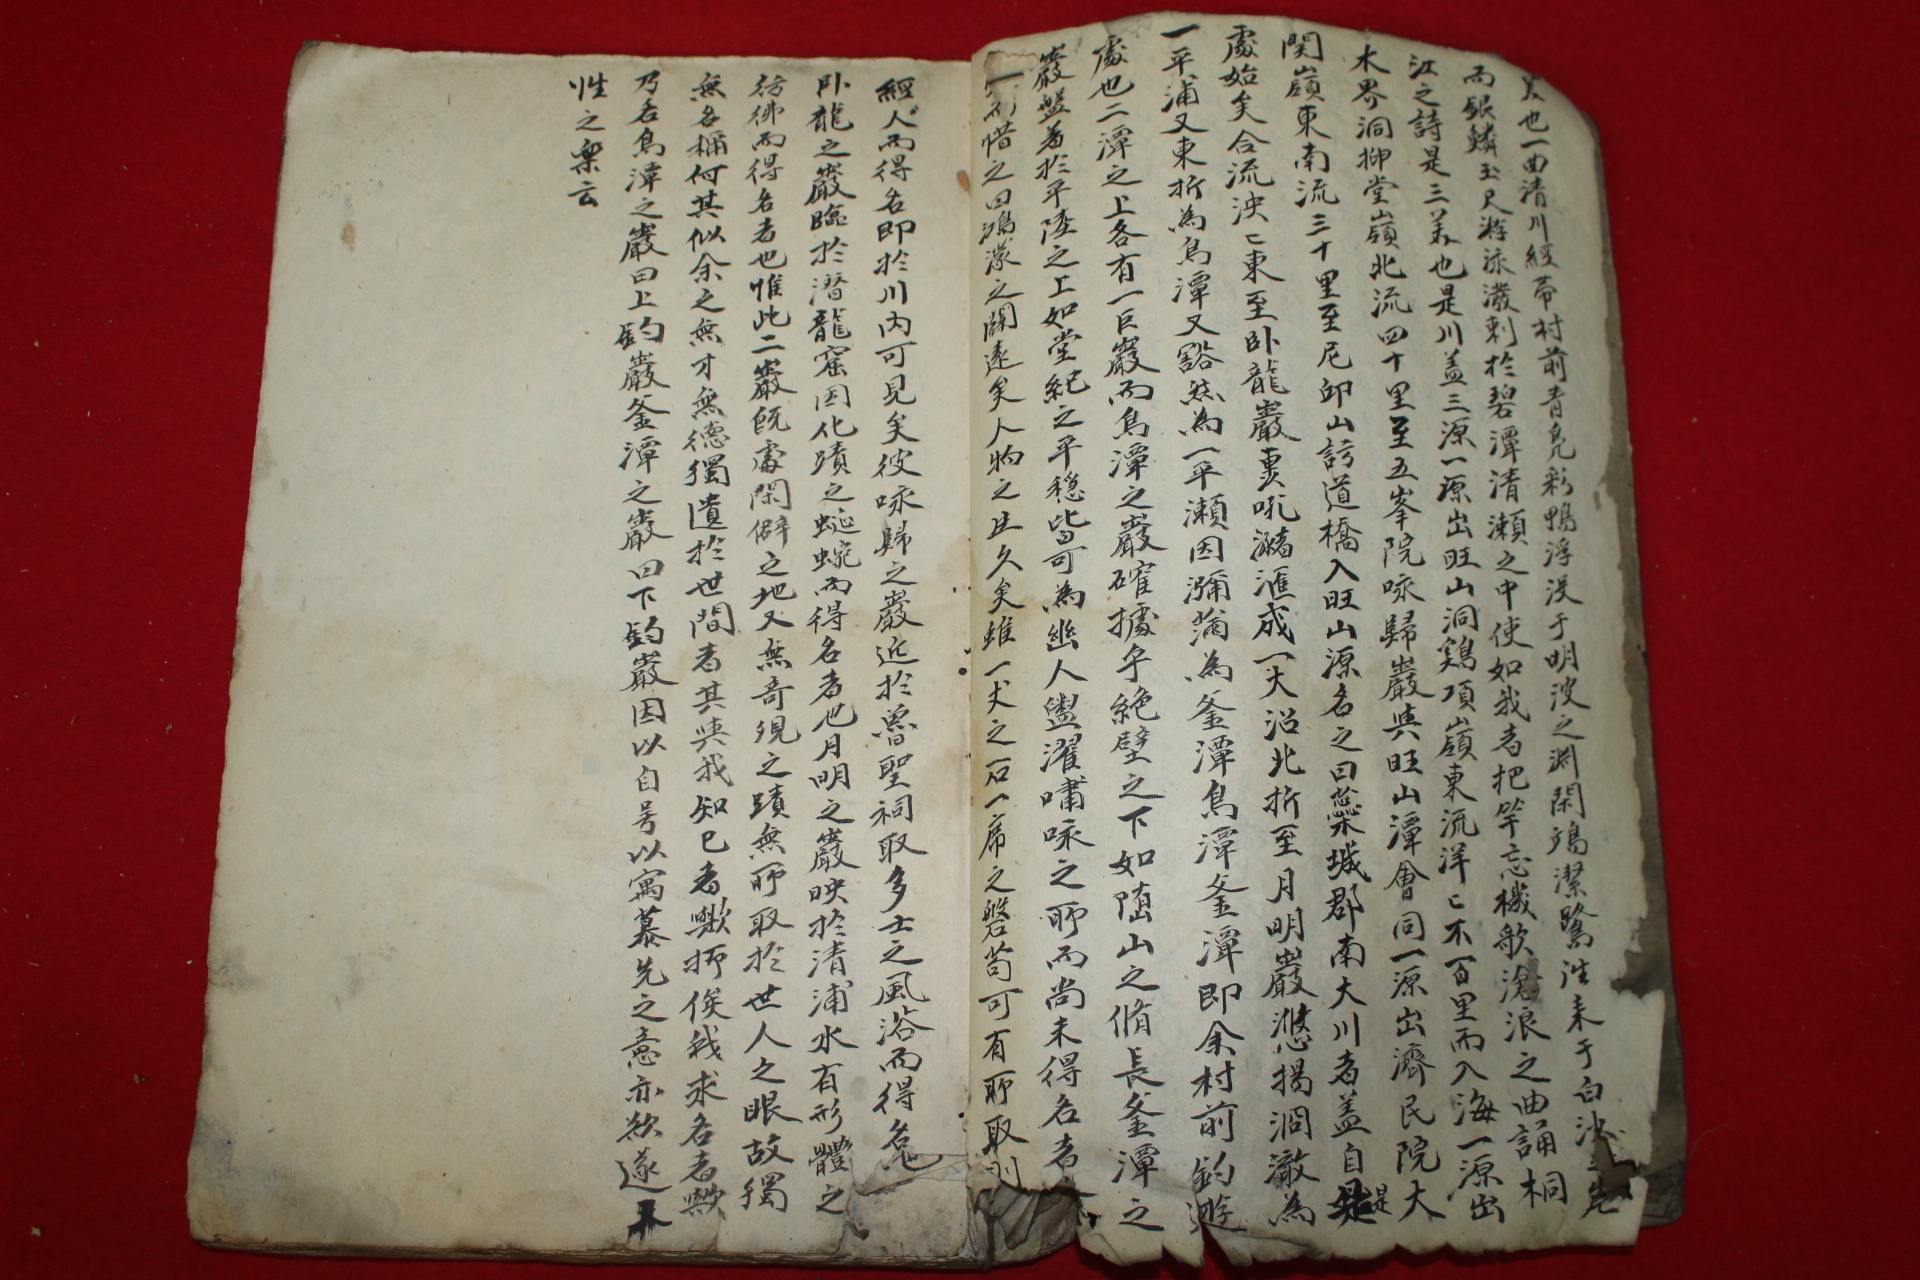 美也一曲清川經帶村前靑鳧彩鴨浮沒于明波之渊閑鴻潔鷺往来于白沙
而銀鱗玉尺游泳潑剌於碧潭清瀬之中使如我者把竿忘機歌滄浪之曲誦桐
江之詩是三美也是川盖三源一源出旺山洞鷄項嶺東流洋〻不百里而入海一源出
木界洞抑堂嶺北流四十里至五峯院咏歸巖與旺山潭會同一源出濟民院大
関嶺東南流三十里至尼卯山訪道橋入旺山源名之曰蘂城郡南大川者盖自是
處始矣合流泱〻東至卧龍巖吼瀦滙成一大沼北折至月明巖漗揭泂澈為
一平浦又東折為鳥潭又豁然為一平瀬因瀰滿為釜潭鳥潭釜潭即余村前釣遊
處也二潭之上各有一巨巖而鳥潭之巖確據乎絶壁之下如隋山之脩長釜潭之
巖盤着於平陸之上如堂紀之平穏皆可為幽人盥濯嘯咏之所而尚未得名者
惜之曰鴻濛之闢遠矣人物之生久矣雖一犬之石一席之磐苟可有所取則
經人而得名即於川内可見矣彼咏歸之巖近於魯聖祠取多士之風浴而得名
卧龍之巖臨於潛龍窟因化蹟之蜿蜒而得名者也月明之巖映於清浦水有形軆之
彷彿而得名者也惟此二巖既處閑僻之地又無奇現之蹟無所取於世人之眼故獨
無名稱何其似余之無才無德獨遺於世間者其與我知已者歟抑俟我求名者歟
乃名鳥潭之巖曰上釣巖釜潭之巖曰下釣巖因以自号以寓慕先之意亦欲遂
性之樂云